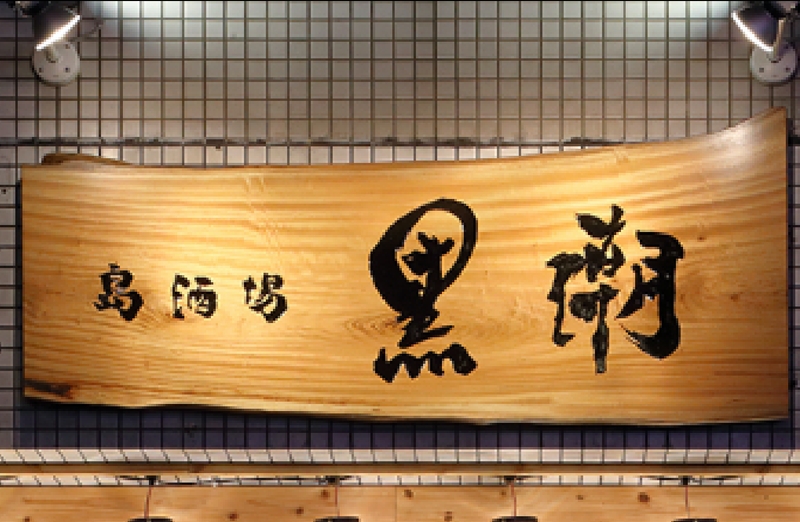 島酒場 黒潮